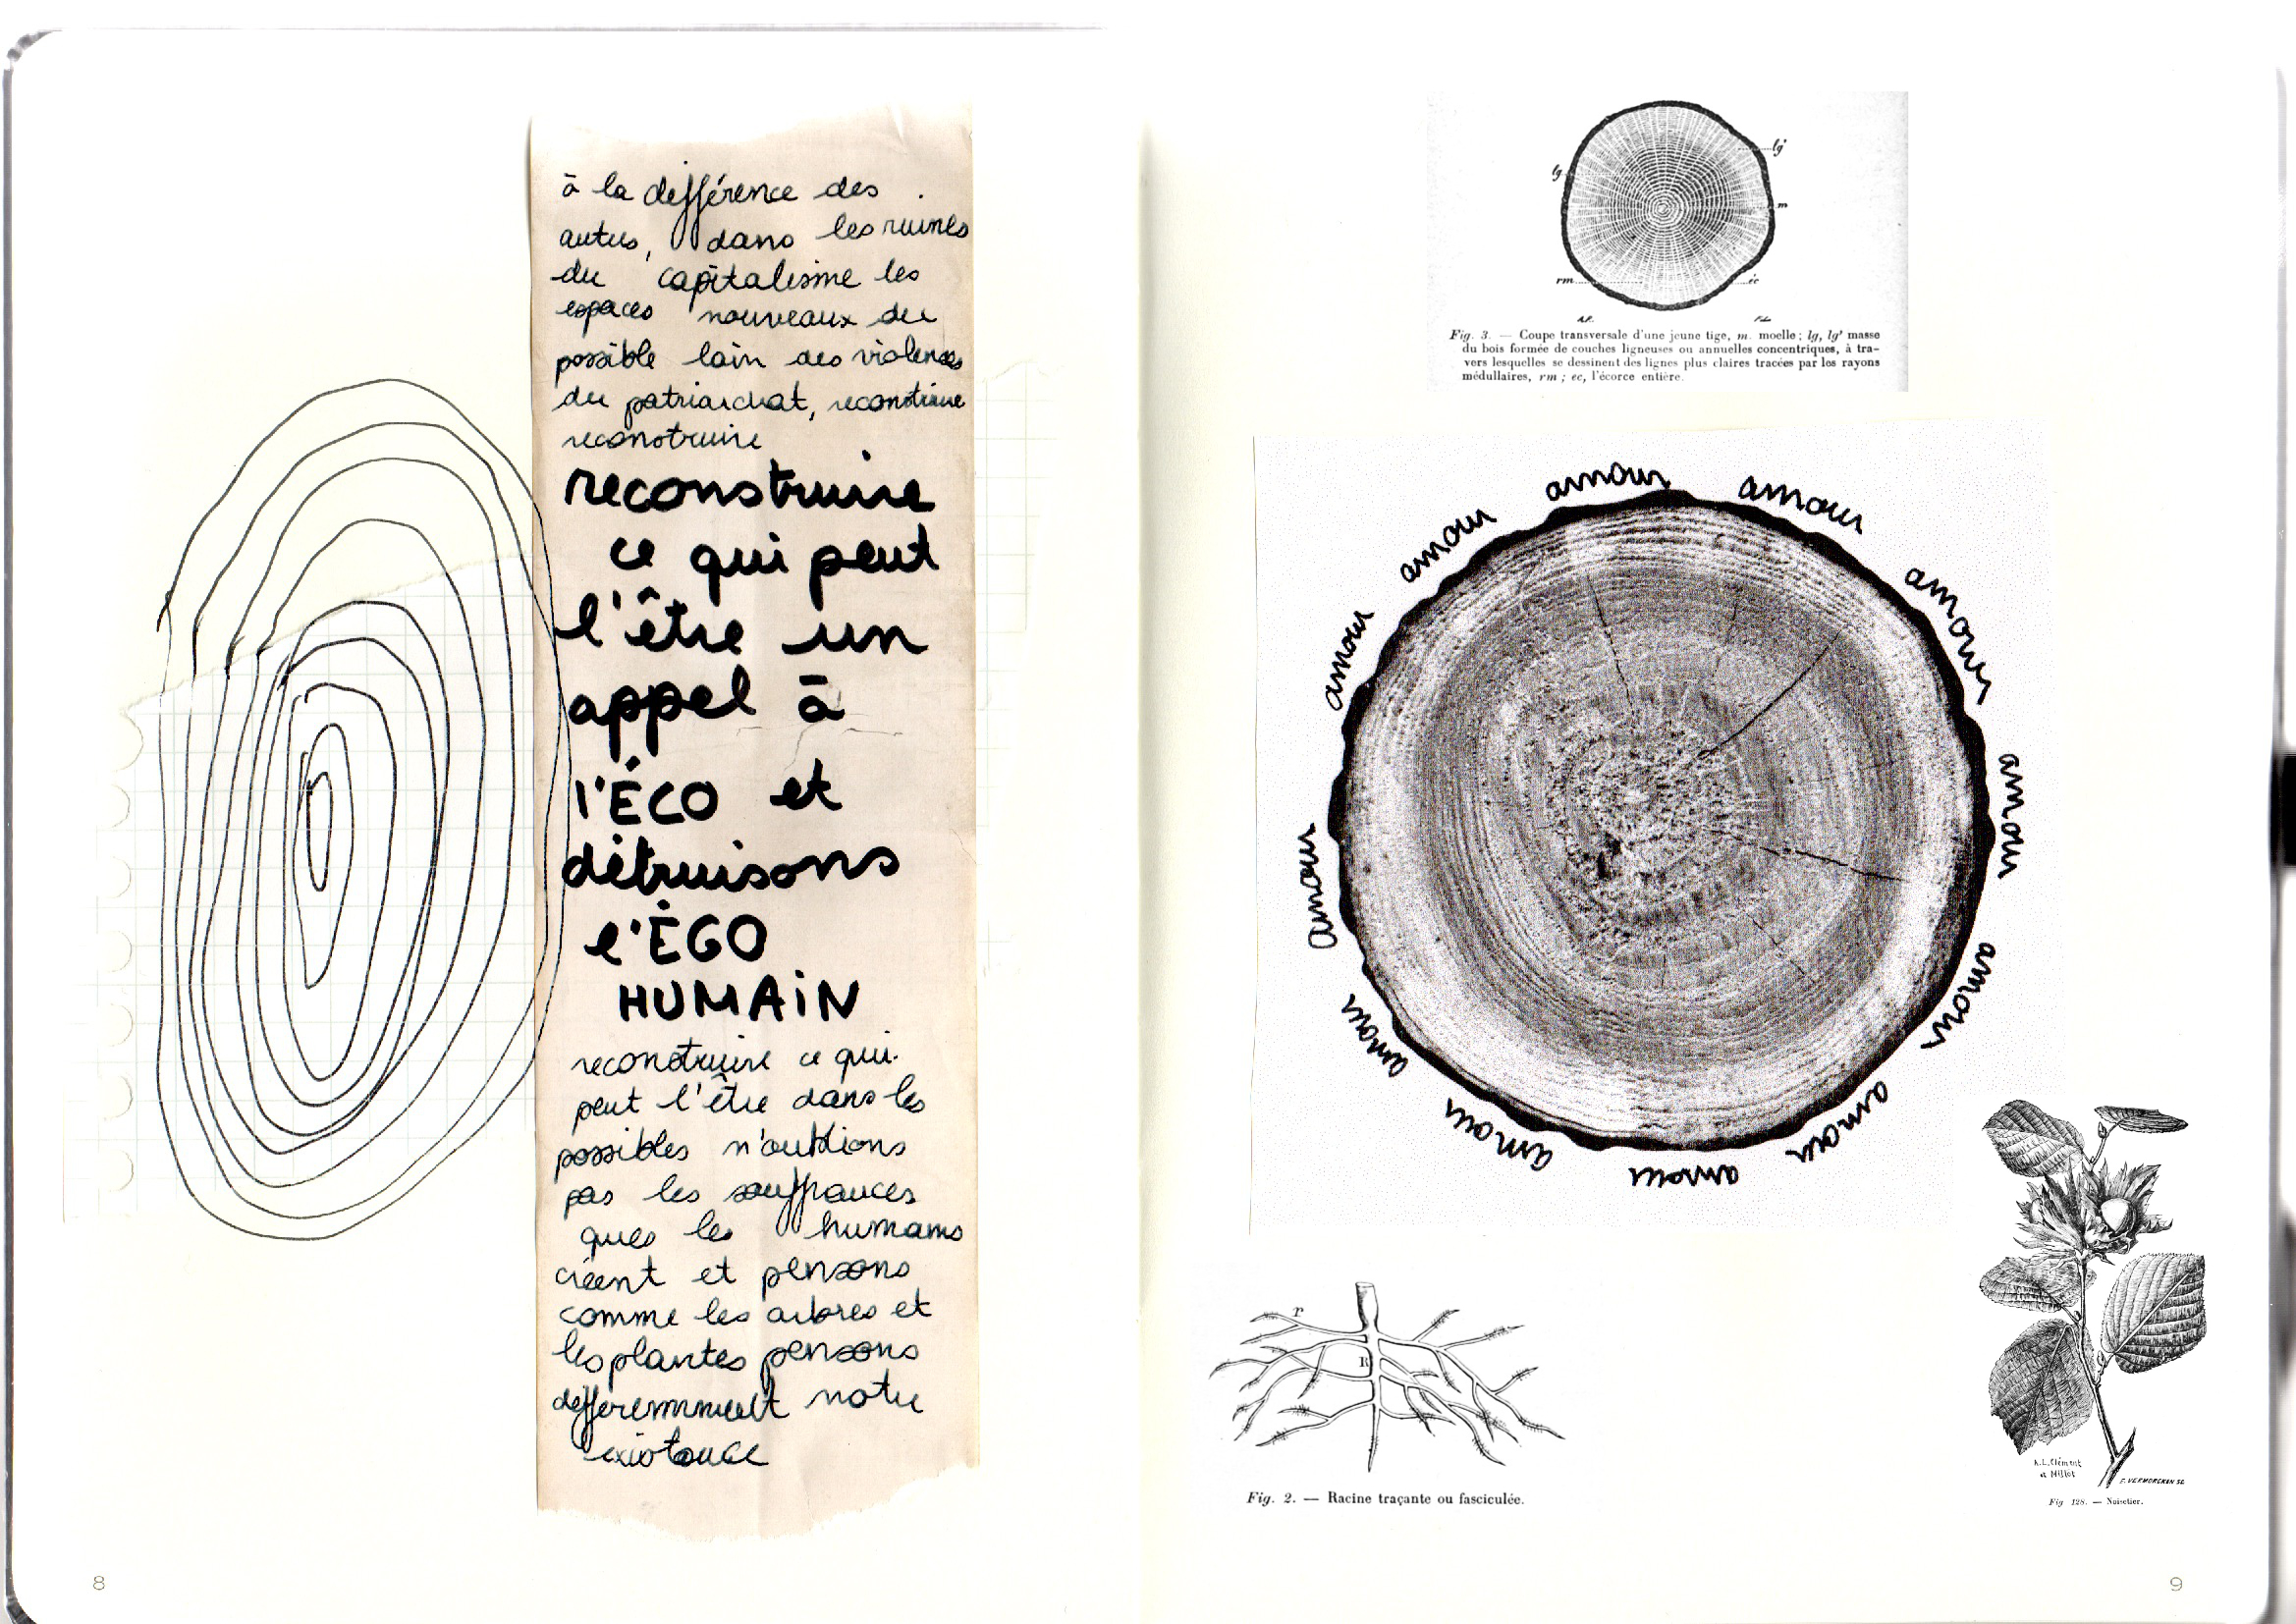 à la différence des
autres, dans les ruines
du capitalisme les
espaces nouveaux du
possible loin des violences
du patriarchat, reconstruire
reconstruire
reconstruire
ce qui peut
l'être un
appel à
l'ÉCO et
détruisons
l'ÉGO
HUMAiN
reconstruire ce qui
peut l'être dans les
possibles n'oublions
pas les souffrances
ques les humains
créent et pensons
comme les arbres et
les plantes pensons
différemment notre
existence
8
lg'
lg
m
rm
éc
A.F.
Fig. 3. — Coupe transversale d'une jeune tige, m. moelle ; lg, lg' masse
du bois formée de couches ligneuses ou annuelles concentriques, à tra-
vers lesquelles se dessinent des lignes plus claires tracées par les rayons
médullaires, rm ; ec, l'écorce entière.
amour
amour
amour
amour
amour
amour
amour
amour
amour
amour
amour
amour
amour
r
R
Fig. 2. — Racine traçante ou fasciculée.
A.L. Clément
et Millot
F. VERMORCKEN SC.
Fig 128. — Noisetier.
9